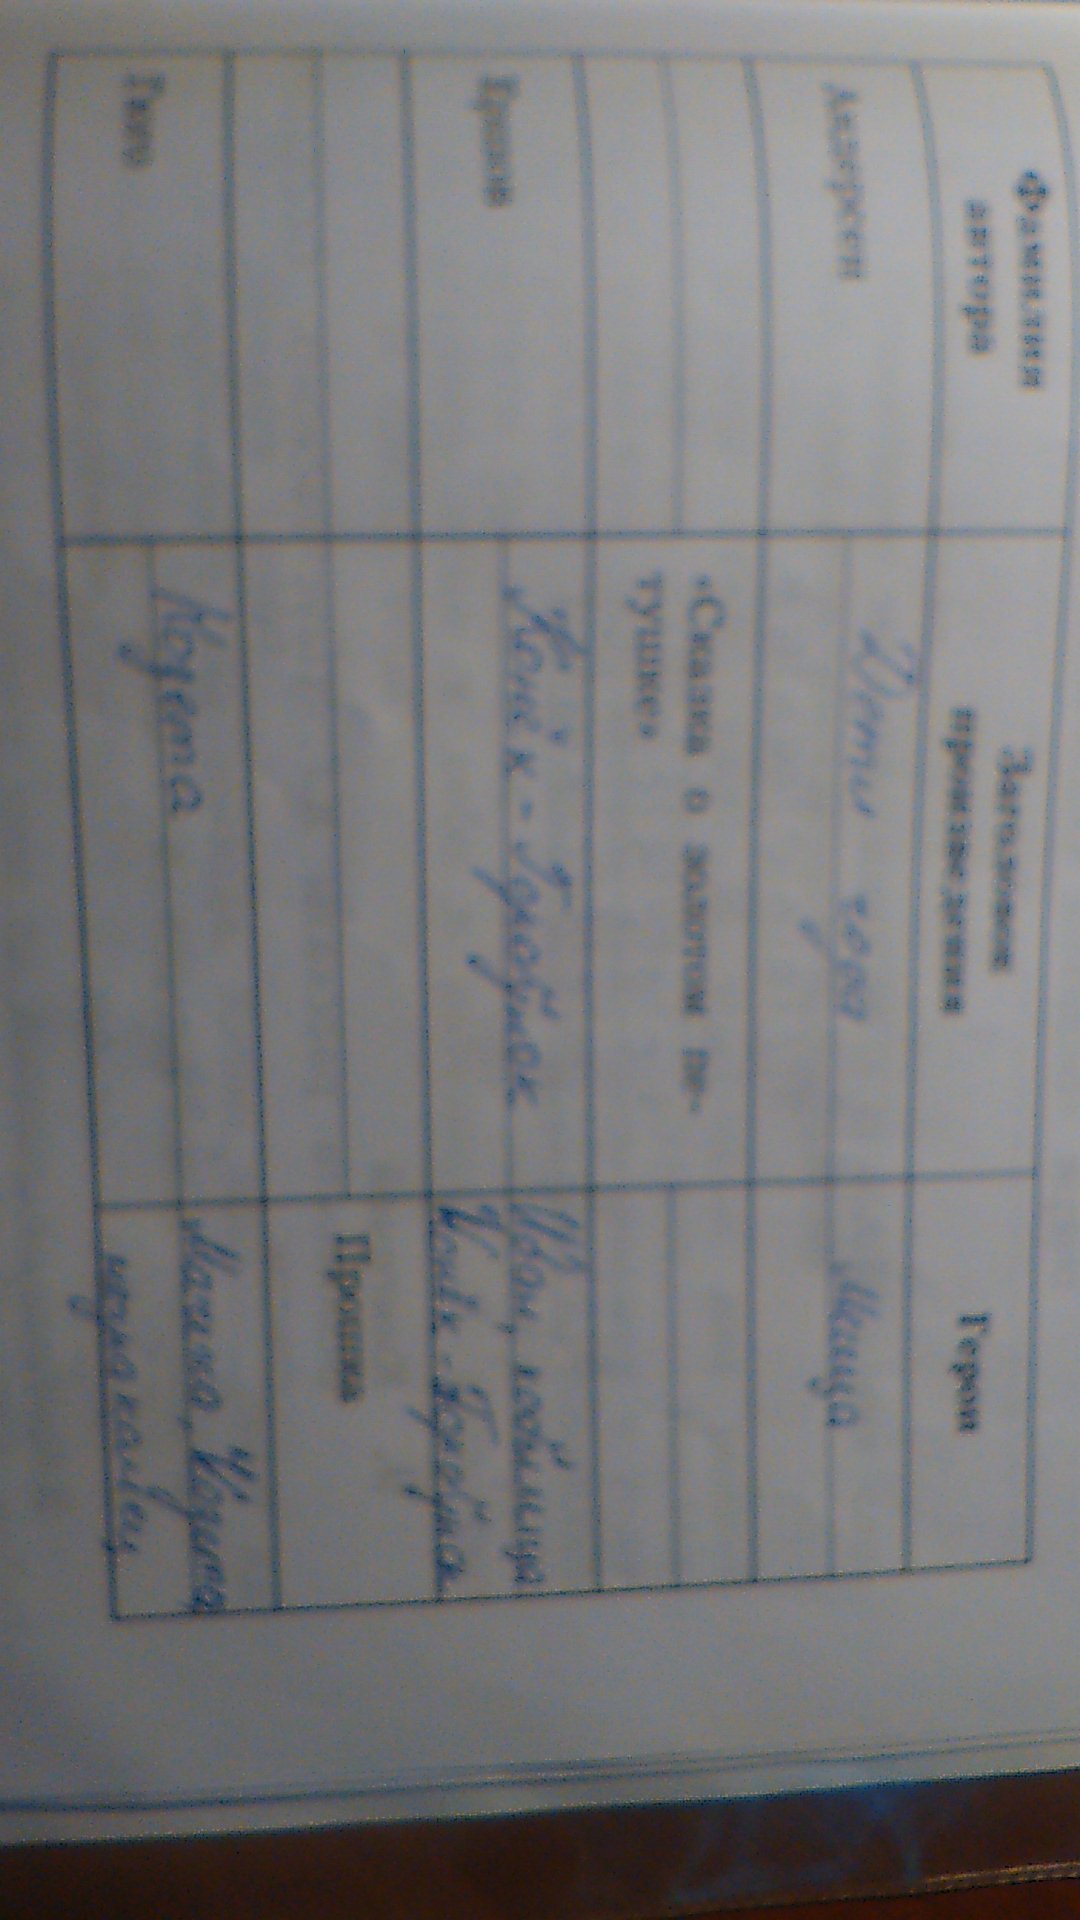 Фамилия
автора
Заголовок
произведения
Герои
Андерсен
Дети года
Мица
«Сказка о золотом пе-
тушке»
Ершов
Конёк - Горбунок
Иван, кобылица
Конёк - Горбунок
Прошка
Гюго
Козетта
Козетта